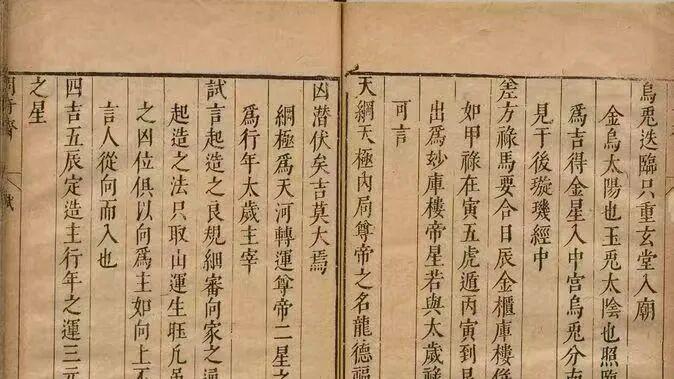 烏兎迭臨只重玄堂入廟
金烏太陽也玉兎太陰也照臨
爲吉得金星入中宮烏兎分
見于後璇璣經中
差方祿馬要合日辰金櫃庫樓
如甲祿在寅五虎遁丙寅到
出爲妙庫樓帝星若與太歲祿
可言
天綱天極內局尊帝之名龍德福
凶潛伏矣吉莫大焉
綱極爲天河轉運尊帝二星之
爲行年太歲主宰
試言起造之良規細審向家之
起造之法只取山運生旺
之凶位俱以向爲主如向上不
言人從向而入也
四吉五辰定造主行年之運三元
之星